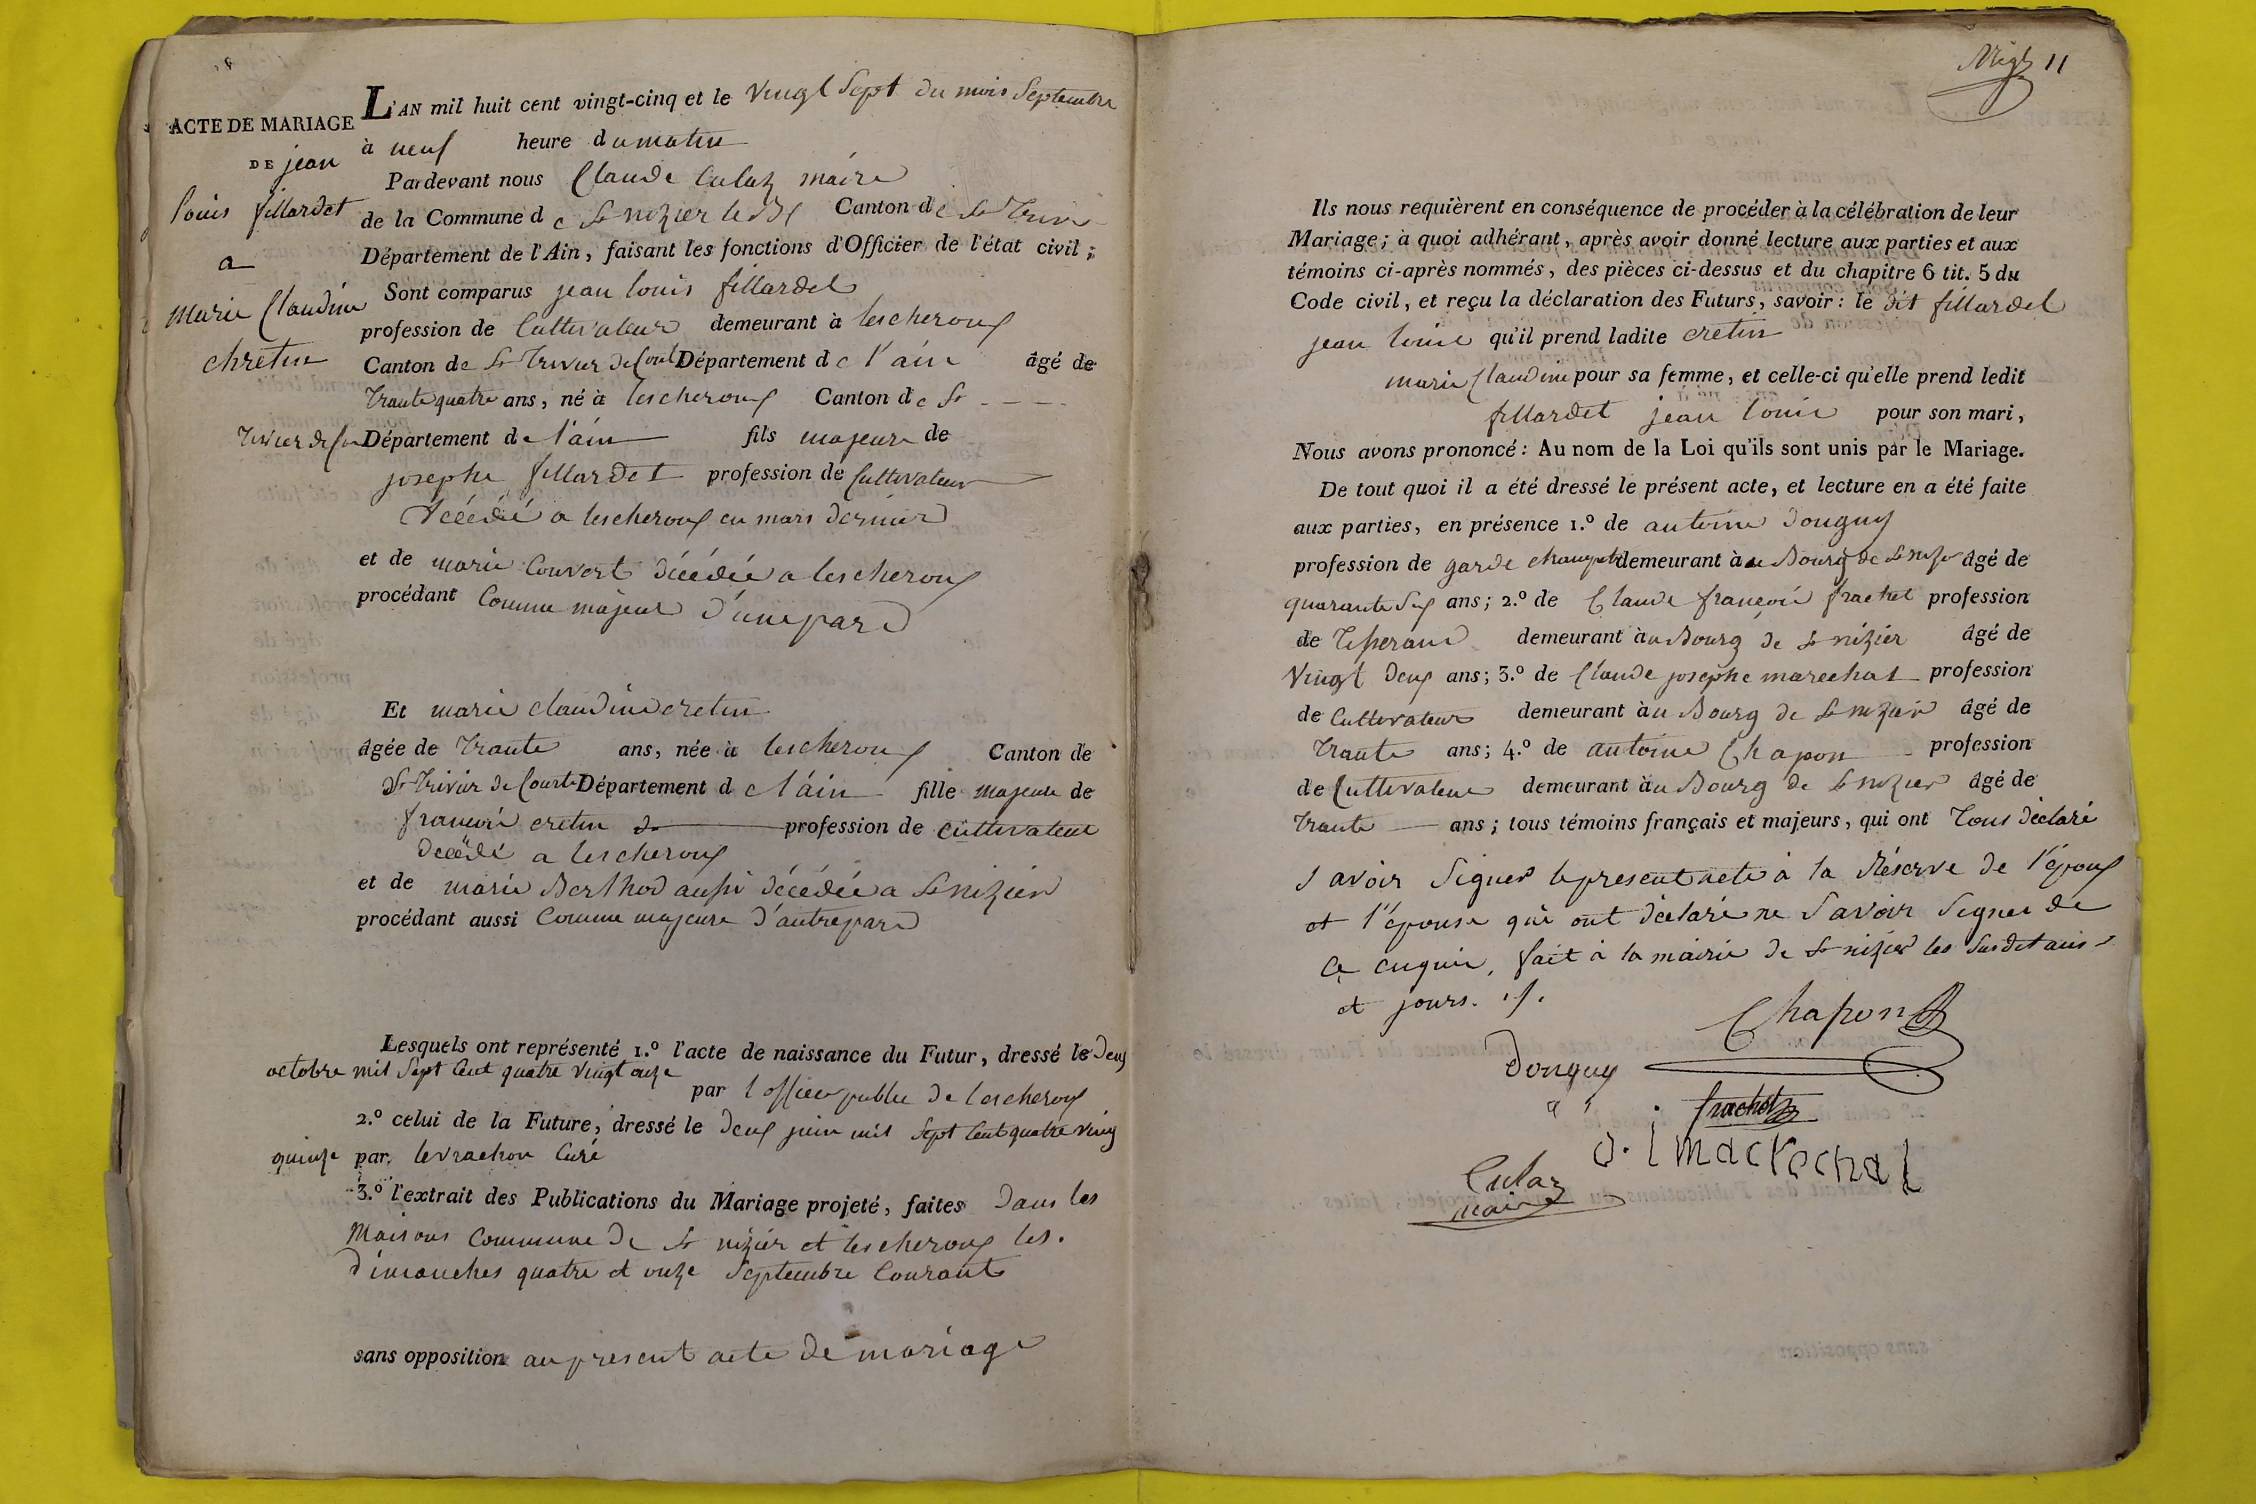 ACTE DE MARIAGE
DE jean
louis fillardet
a
marie Claudine
chretin
L'AN mil huit cent vingt-cinq et le vingt Sept du mois Septembre
à neuf heure du matin
Pardevant nous Claude Culaz maire
de la Commune de St nizier le Canton de St
Département de l'Ain, faisant les fonctions d'Officier de l'état civil ;
Sont comparus jean louis fillardet
profession de Cultivateur demeurant à lescheroux
Canton de St Trivier de Court Département de l'ain âgé de
Trante quatre ans, né à lescheroux Canton de St
Trivier de Cou Département de l'ain fils majeure de
josephe fillardet profession de Cultivateur
décédé a lescheroux en mars dernier
et de marie Couvert décédée a lescheroux
procédant Comme majeur d'une pard
Et marie claudine cretin
âgée de Trante ans, née à lescheroux Canton de
St Trivier de Courte Département de l'ain fille majeure de
francois cretin profession de Cultivateur
décédé a lescheroux
et de marie Berthod aussi décédée a St nizier
procédant aussi Comme majeure d'autre pard
Lesquels ont représenté 1.º l'acte de naissance du Futur, dressé le Deux
octobre mil Sept Cent quatre vingt onze
par l'officier public de lescheroux
2.º celui de la Future, dressé le Deux juin mil Sept Cent quatre ving
quinze par levrachon Curé
3.º l'extrait des Publications du Mariage projeté, faites Dans les
Maisons Commune de St nizier et lescheroux les.
dimanches quatre et onze Septembre Courant
sans opposition au present acte de mariage
11
Ils nous requièrent en conséquence de procéder à la célébration de leur
Mariage ; à quoi adhérant, après avoir donné lecture aux parties et aux
témoins ci-après nommés, des pièces ci-dessus et du chapitre 6 tit. 5 du
Code civil, et reçu la déclaration des Futurs, savoir : le dit fillardet
jean louis qu'il prend ladite cretin
marie Claudine pour sa femme, et celle-ci qu'elle prend ledit
fillardet jean louis pour son mari,
Nous avons prononcé : Au nom de la Loi qu'ils sont unis par le Mariage.
De tout quoi il a été dressé le présent acte, et lecture en a été faite
aux parties, en présence 1.º de antoine Donguy
profession de garde champetr demeurant à au Bourg de St nizier âgé de
quarante Six ans ; 2.º de Claude françois frachet profession
de Tisserand demeurant à au Bourg de St nizier âgé de
Vingt Deux ans ; 3.º de Claude josephe marechal profession
de Cultivateur demeurant à au Bourg de St nizier âgé de
Trante ans ; 4.º de antoine Chapon profession
de Cultivateur demeurant à au Bourg de St nizier âgé de
Trante ans ; tous témoins français et majeurs, qui ont Tous déclaré
Savoir Signer le present acte à la Réserve de l'époux
et l'épouse qui ont déclaré ne Savoir Signer de
ce enquis, fait à la mairie de St nizier les Susdit ans
et jours. ./.
Chapon
Donguy
frachet
marechal
Culaz
maire